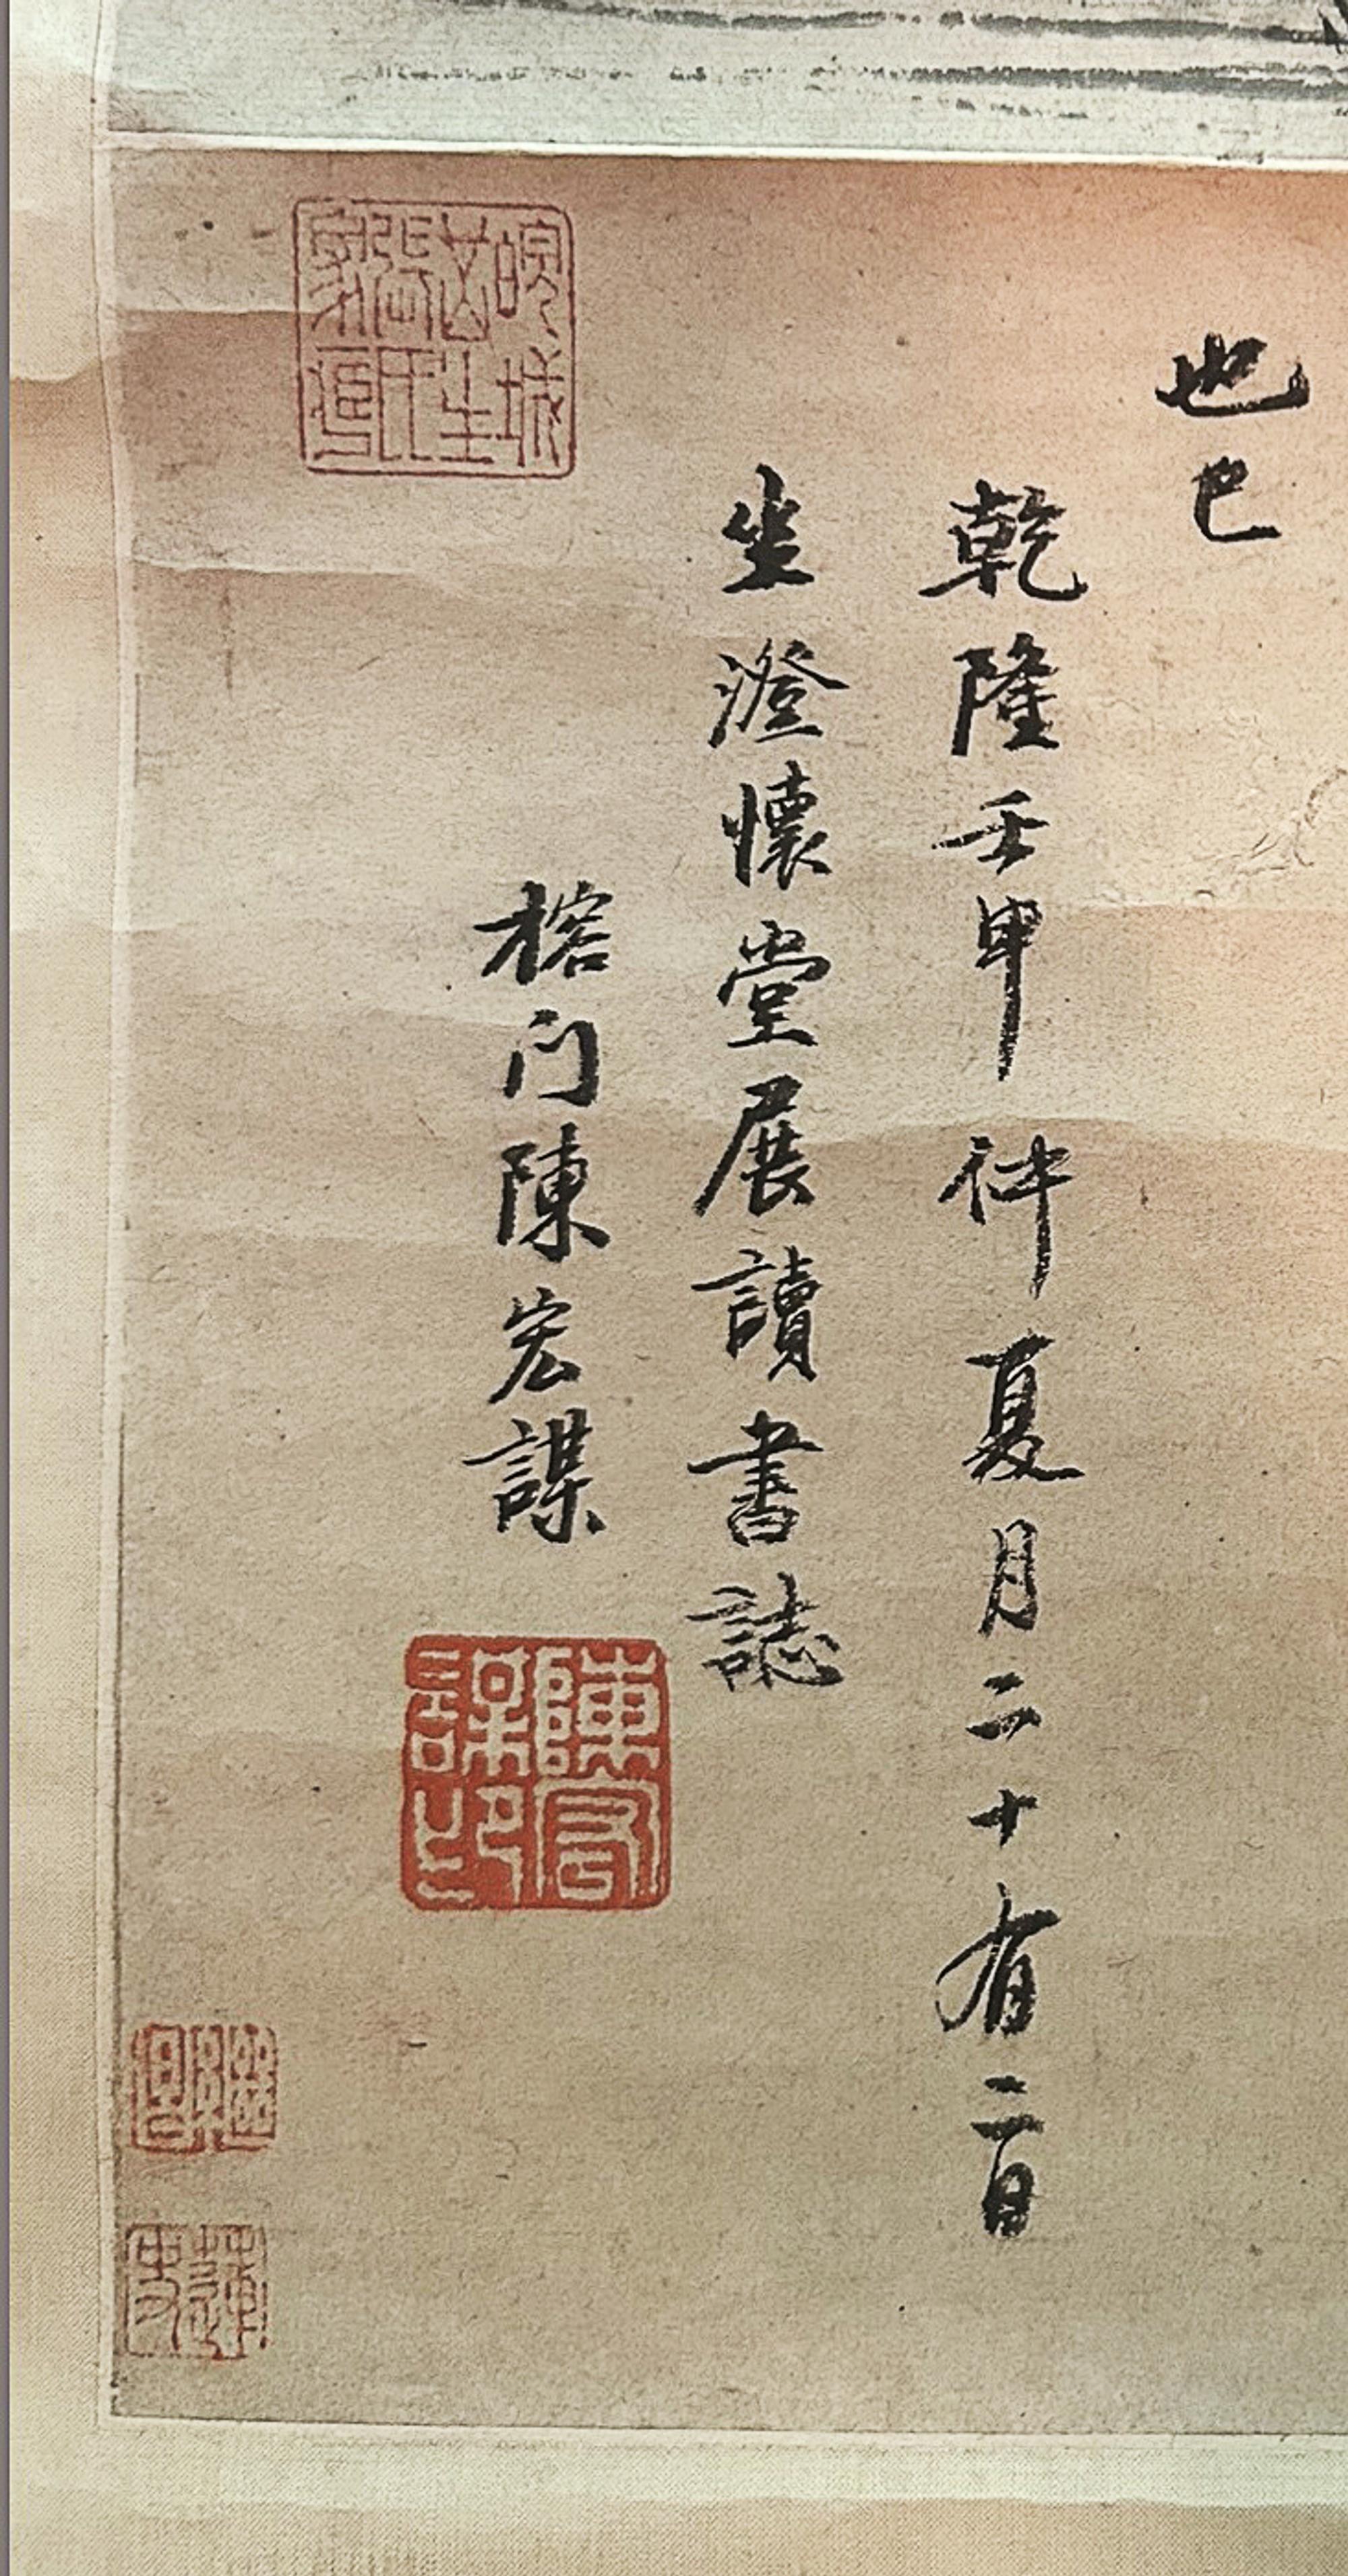 也已
乾隆壬申仲夏月二十有二日
坐澄懷堂展讀書誌
榕门陳宏謀
陳宏謀印
皖城
生
張氏